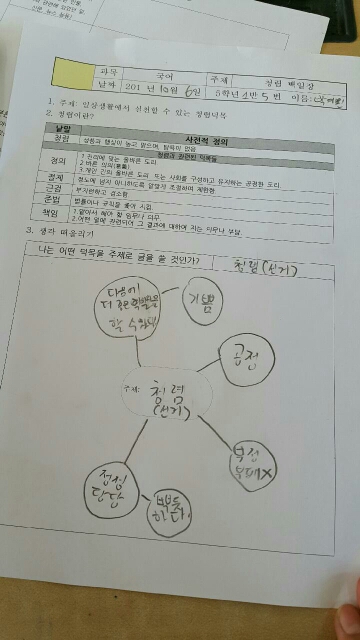 과목 국어 주제 청렴 백일장
날짜 201 년 10월 6일 5학년 4반 5번 이름:
1. 주제: 일상생활에서 실천할 수 있는 청렴덕목
2. 청렴이란?
낱말 사전적 정의
청렴 성품과 행실이 높고 맑으며, 탐욕이 없음
청렴과 관련된 덕목들
정의 1.진리에 맞는 올바른 도리
2.바른 의의(意義)
3.개인 간의 올바른 도리. 또는 사회를 구성하고 유지하는 공정한 도리.
절제 정도에 넘지 아니하도록 알맞게 조절하여 제한함
근검 부지런하고 검소함
준법 법률이나 규칙을 좇아 지킴.
책임 1.맡아서 해야 할 임무나 의무
2.어떤 일에 관련되어 그 결과에 대하여 지는 의무나 부담.
3. 생각 떠올리기
나는 어떤 덕목을 주제로 글을 쓸 것인가? 청렴(선거)
다음에
더 좋은
할 수
기쁨
공정
주제: 청렴
(선거)
부정
부패X
정정
당당
뿌듯
하다.